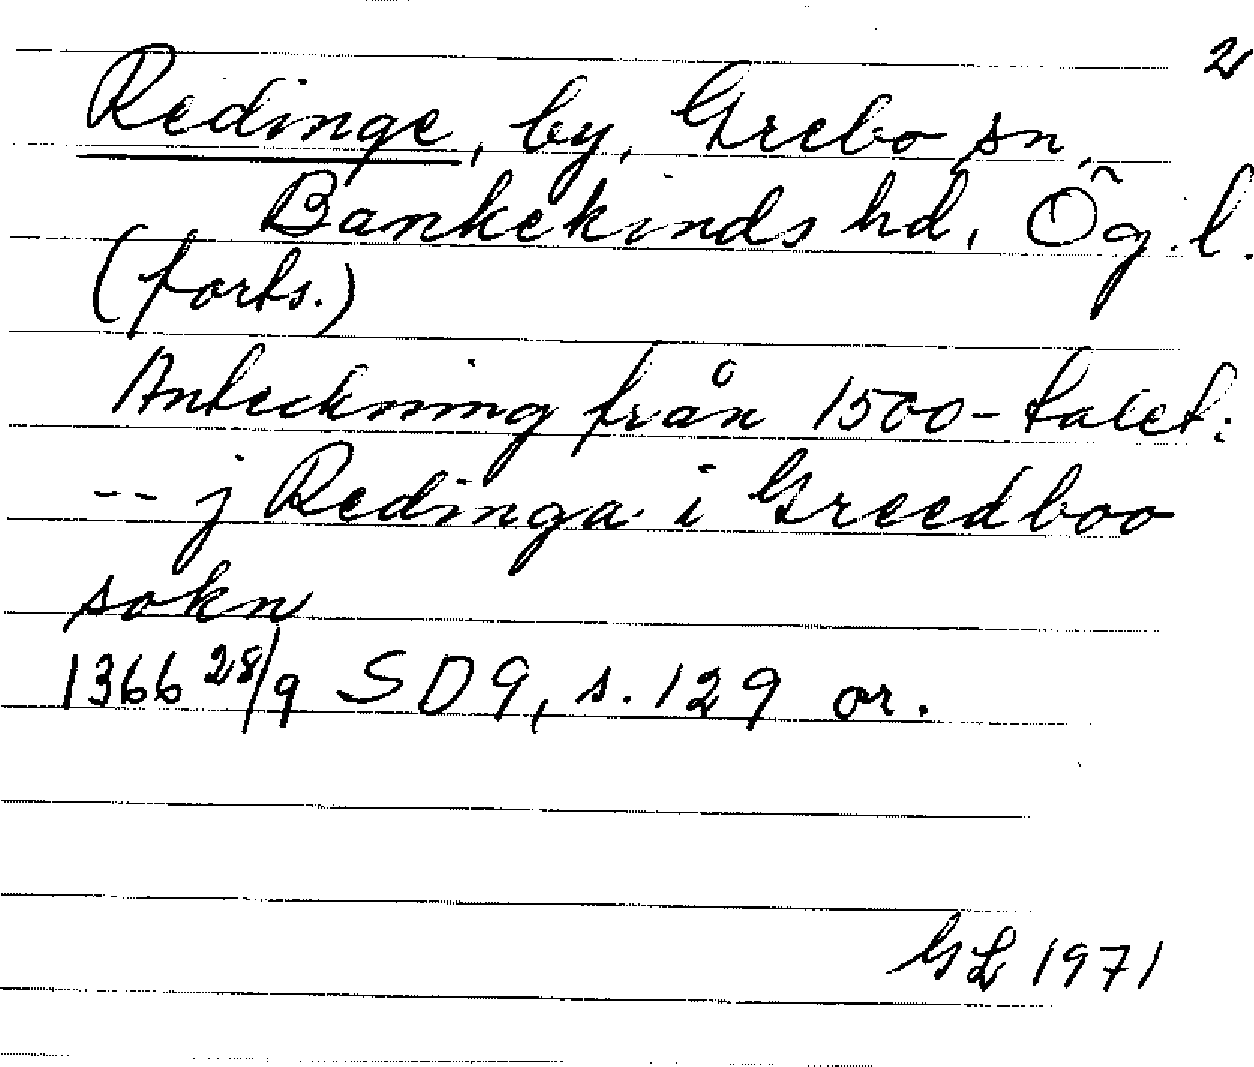 2
Redinge, by, Grebo sn,
Bankekinds hd, Ög. l.
(forts.)
Anteckning från 1500-talet:
-- j Redinga i Greedboo
sokn
1366 28/9 SD 9, s. 129 or.
GL 1971